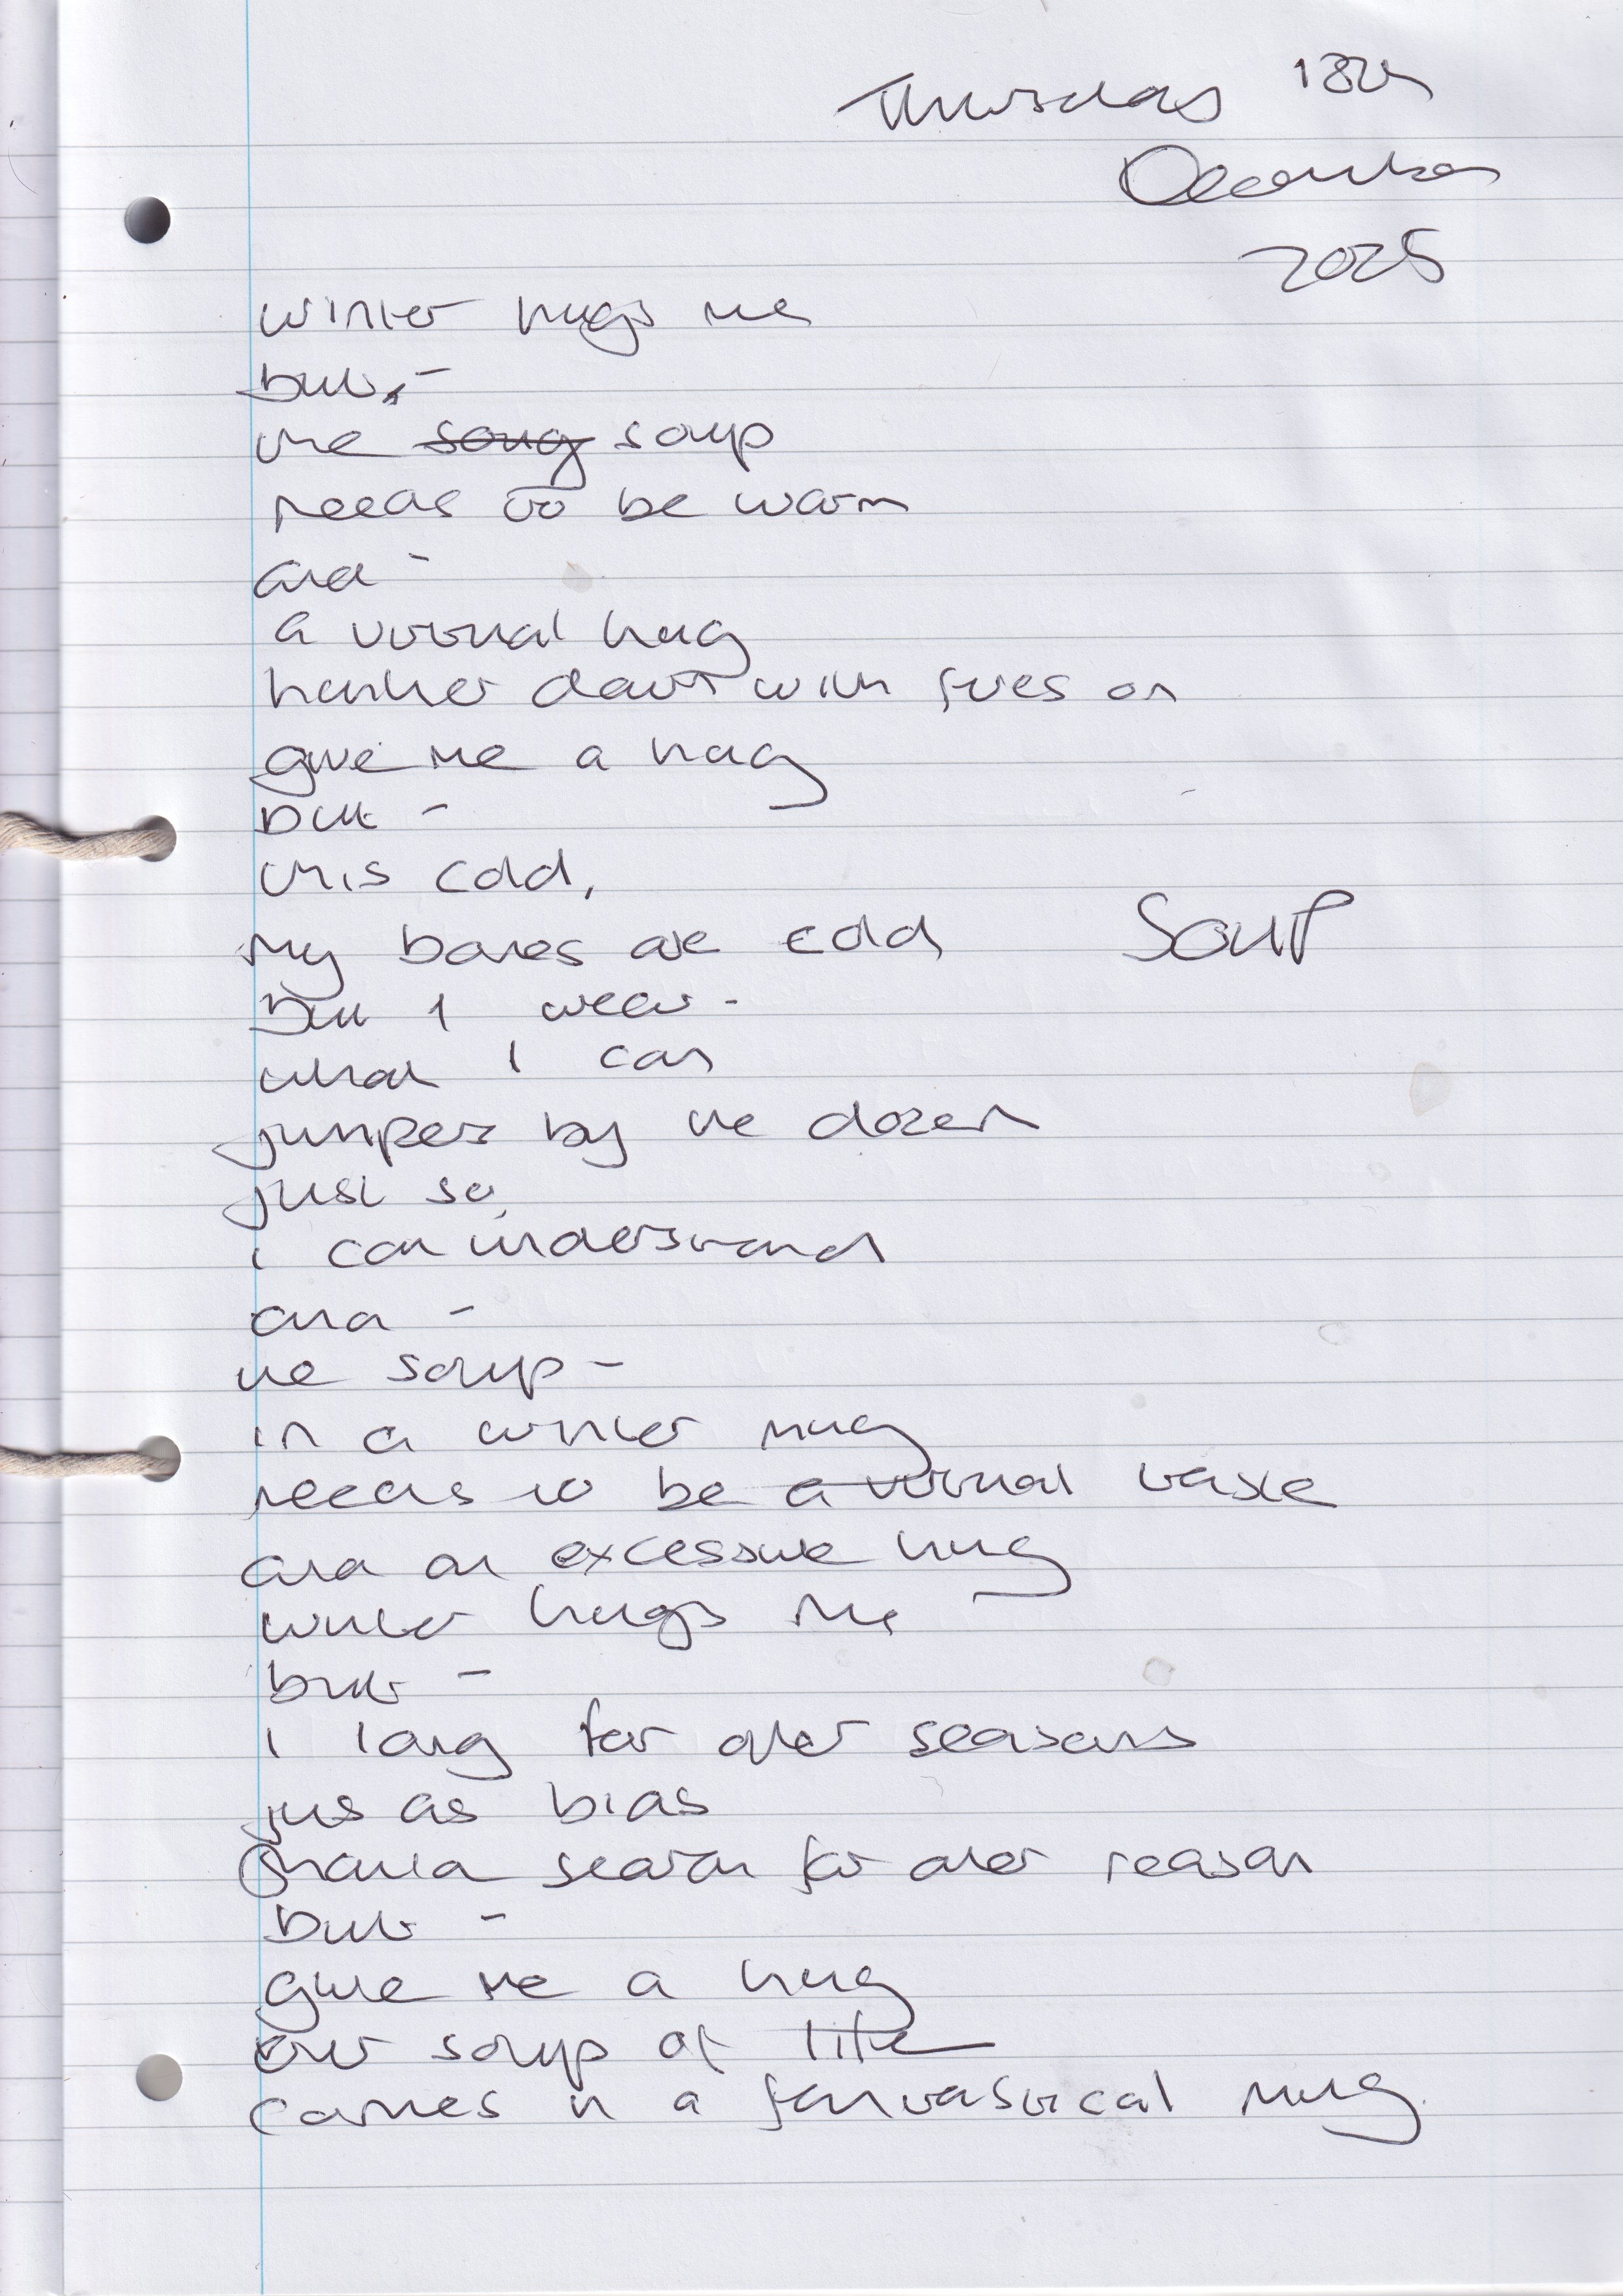 Thursday 18th
December
2025
winter hugs me
but, -
the song soup
needs to be warm
and -
a virtual hug
hunker down with fires on
give me a hug
but -
this cold,
my bones are cold
SOUP
but I wear -
what I can
jumpers by the dozen
just so,
i can understand
and -
the soup -
in a winter mug
needs to be a virtual taste
and an excessive hug
winter hugs me
but -
I long for other seasons
just as bias
should search for other reason
but -
give me a hug
our soup of life
comes in a fantastical mug.